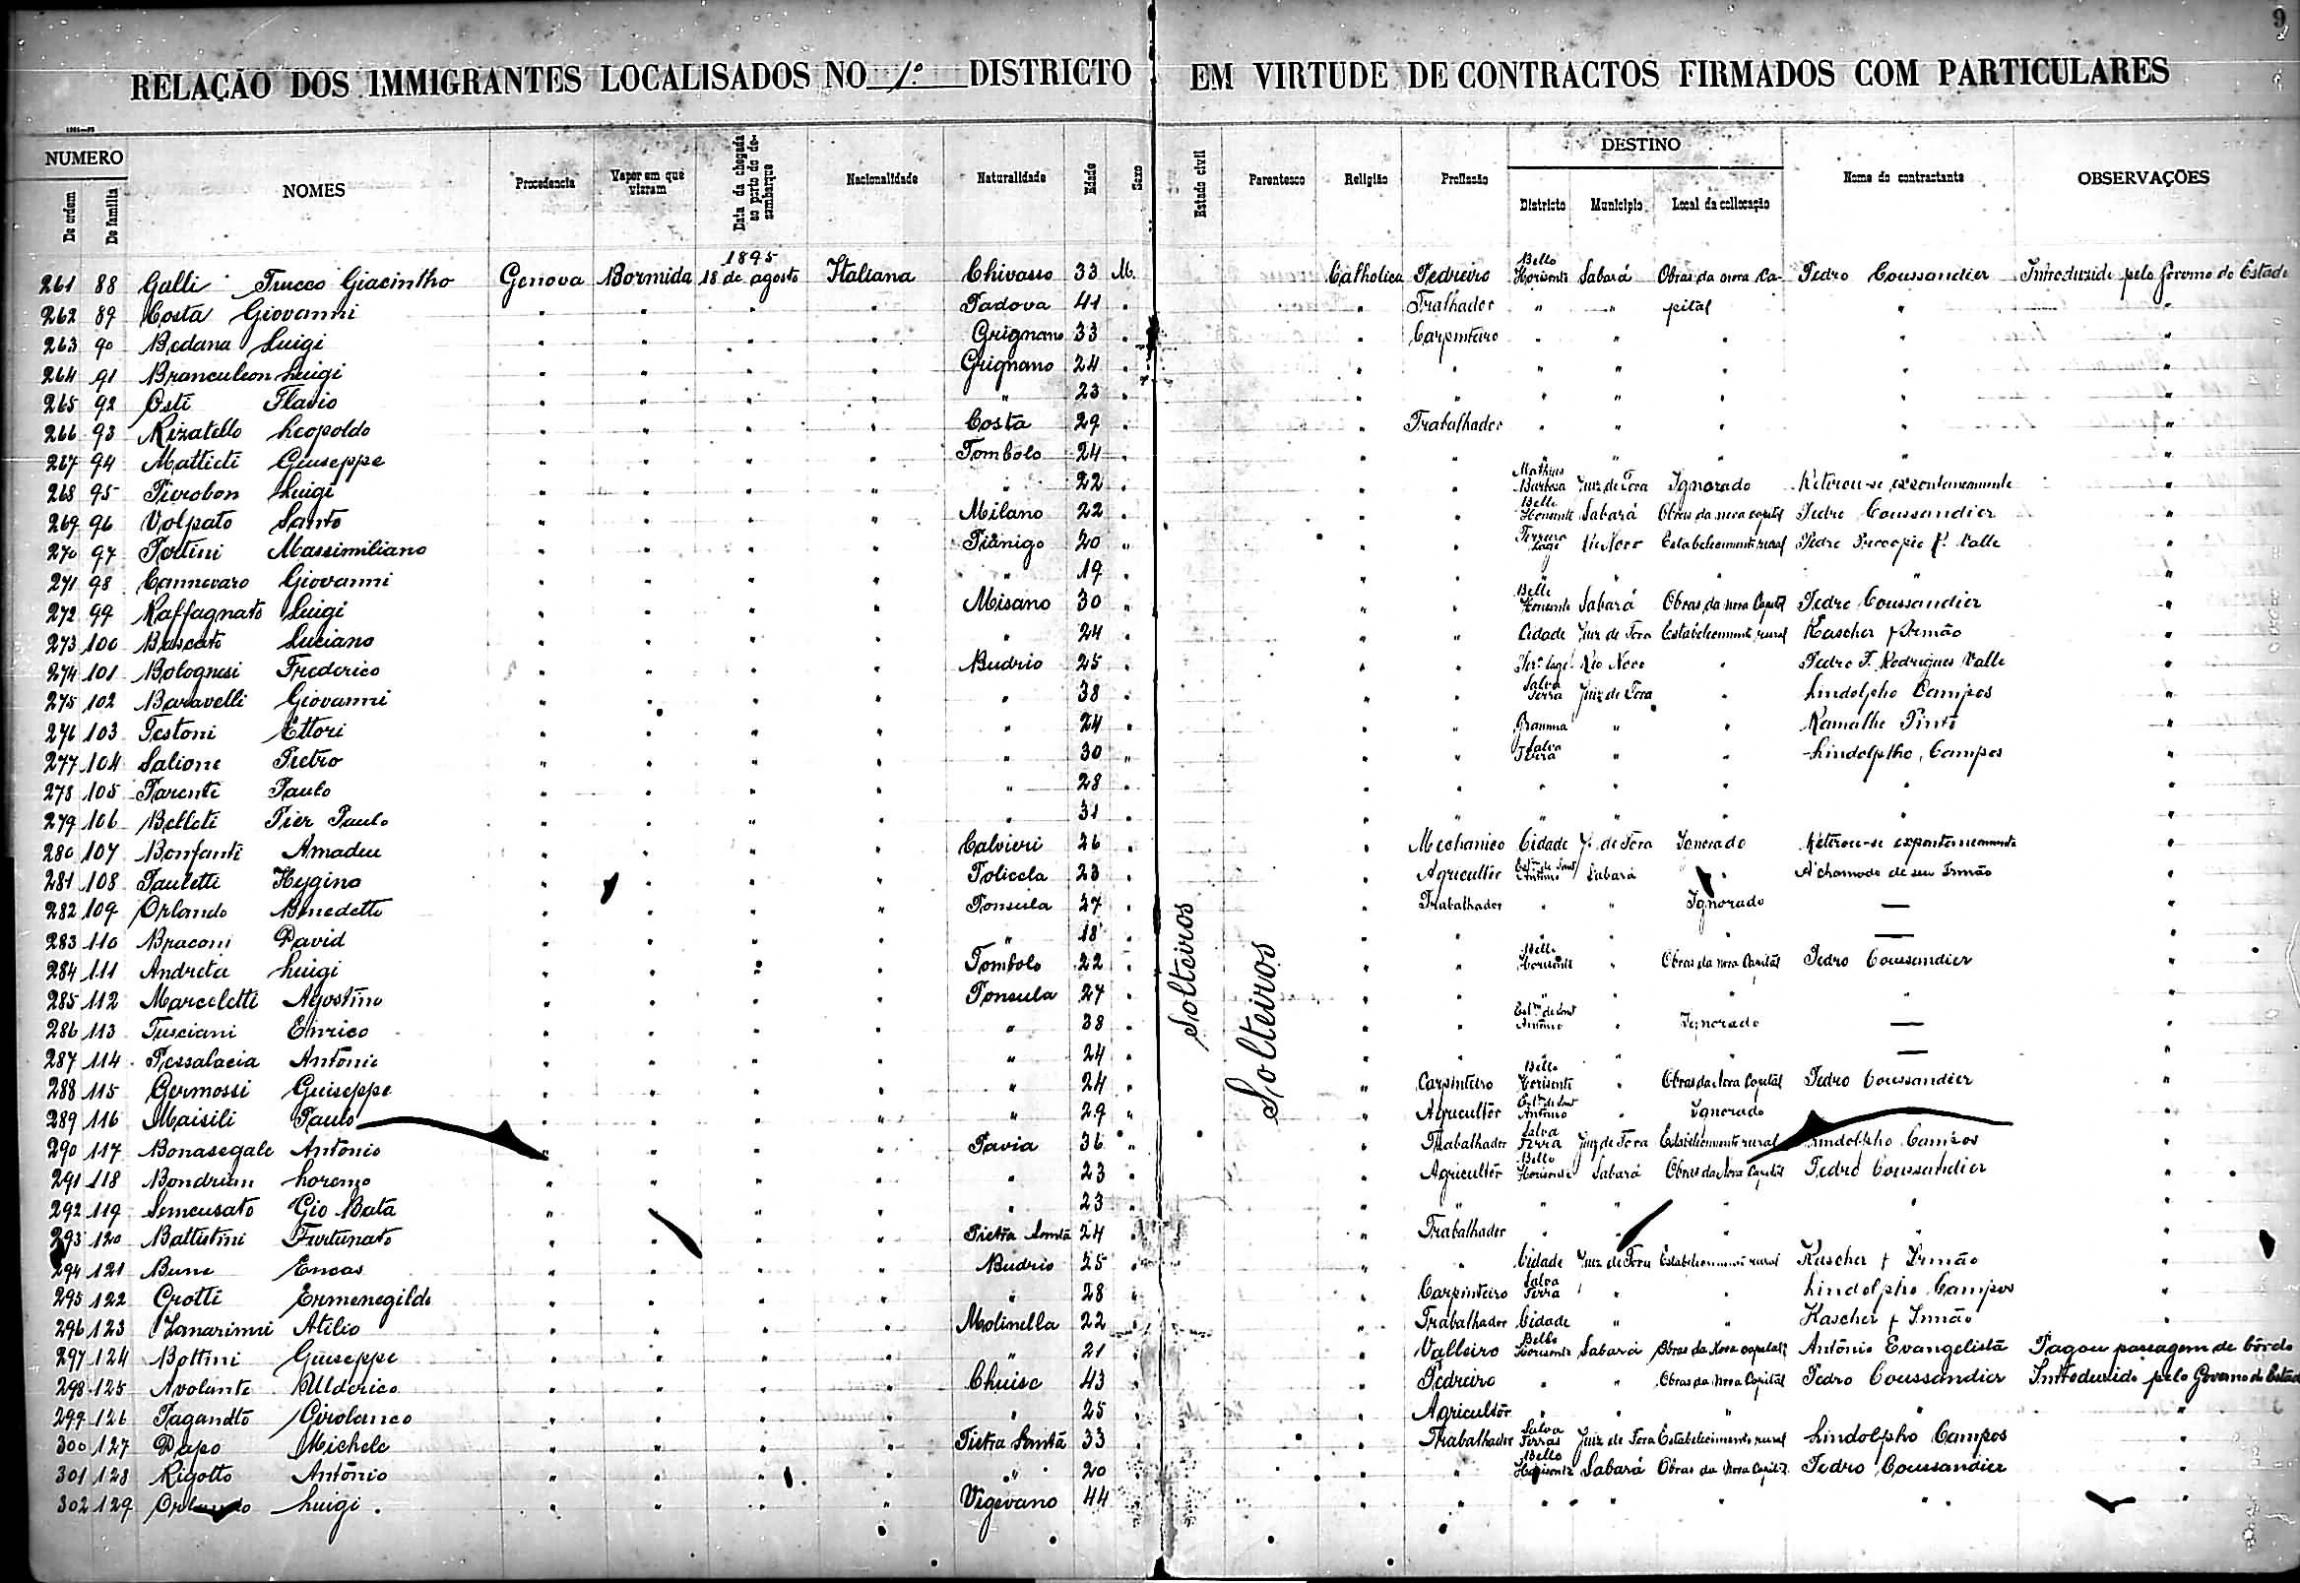 9
RELAÇÃO DOS IMMIGRANTES LOCALISADOS NO 1º DISTRICTO EM VIRTUDE DE CONTRACTOS FIRMADOS COM PARTICULARES
NUMERO De ordem De familia NOMES Procedencia Vapor em que vieram Data da chegada ao porto do desembarque Nacionalidade Naturalidade Edade Sexo Estado civil Parentesco Religião Profissão DESTINO Districto Municipio Local da collocação Nome do contractante OBSERVAÇÕES
261 88 Galli Trucco Giacintho Genova Bormida 1895 18 de agosto Italiana Chivasso 33 M. Catholica Pedreiro Bello Horisonte Sabará Obras da nova Ca- Pedro Coussandier Introduzido pelo Governo do Estado
262 89 Costa Giovanni " " " " Padova 41 " " Tralhador " " pital " "
263 90 Bedana Luigi " " " " Grignano 33 " " Carpinteiro " " " " "
264 91 Branculeon Luigi " " " " Grignano 24 " " " " " " " "
265 92 Osti Flavio " " " " " 23 " " " " " " " "
266 93 Rizatello Leopoldo " " " " Costa 29 " " Trabalhador " " " " "
267 94 Mattieti Giuseppe " " " " Tombolo 24 " " " " " " " "
268 95 Pierobon Luigi " " " " " 22 " " " Mathias Barbosa Juiz de Fora Ignorado Retirou-se expontaneamente "
269 96 Volpato Santo " " " " Milano 22 " " " Bello Horisonte Sabará Obras da nova capital Pedro Coussandier "
270 97 Fortini Massimiliano " " " " Pianigo 20 " " " Ferreira Lage Rio Novo Estabelecimento rural Pedro Procopio R. Valle "
271 98 Cannevaro Giovanni " " " " " 19 " " " " " " " "
272 99 Raffagnato Luigi " " " " Misano 30 " " " Bello Horisonte Sabará Obras da nova Capital Pedro Coussandier "
273 100 Bascato Luciano " " " " " 24 " " " Cidade Juiz de Fora Estabelecimento rural Kascher & Irmão "
274 101 Bolognesi Frederico " " " " Budrio 25 " " " Ferª Lage Rio Novo " Pedro P. Rodrigues Valle "
275 102 Baravelli Giovanni " " " " " 38 " " " Salva Terra Juiz de Fora " Lindolpho Campos "
276 103 Testoni Ettori " " " " " 24 " " " Gramma " " Ramalho Pinto "
277 104 Salione Pietro " " " " " 30 " " " Salva Terra " " Lindolpho Campos "
278 105 Parenti Paulo " " " " " 28 " " " " " " " "
279 106 Belloti Pier Paulo " " " " " 31 " " " " " " " "
280 107 Bonfanti Amadeu " " " " Calvieri 26 " " Mechanico Cidade J. de Fora Ignorado Retirou-se expontaneamente "
281 108 Pauletti Hygino " " " " Policela 23 " " Agricultor Estm de Sant Antonio Sabará " A chamado de seu Irmão "
282 109 Orlando Benedetto " " " " Ponsula 27 " " Trabalhador " " Ignorado — "
283 110 Braconi David " " " " " 18 " " " " " " — "
284 111 Andreta Luigi " " " " Tombolo 22 " " " Bello Horisonte " Obras da nova Capital Pedro Coussandier "
285 112 Marceletti Agostino " " " " Ponsula 27 " " " " " " " "
286 113 Tusciani Enrico " " " " " 38 " " " Estm de Sant Antonio " Ignorado — "
287 114 Pessalacia Antonio " " " " " 24 " " " " " " — "
288 115 Germossi Guiseppe " " " " " 24 " " Carpinteiro Bello Horisonte " Obras da Nova Capital Pedro Coussandier "
289 116 Maisili Paulo " " " " " 29 " " Agricultor Estm de Sant Antonio " Ignorado — "
290 117 Bonasegale Antonio " " " " Pavia 36 " " Trabalhador Salva Terra Juiz de Fora Estabelecimento rural Lindolpho Campos "
291 118 Bondrian Lorenzo " " " " " 23 " " Agricultor Bello Horisonte Sabará Obras da Nova Capital Pedro Coussandier "
292 119 Semensato Gio Bata " " " " " 23 " " " " " " " "
293 120 Battistini Furtunato " " " " Pietra Santa 24 " " Trabalhador " " " " "
294 121 Bune Eneas " " " " Budrio 25 " " " Cidade Juiz de Fora Estabelecimento rural Kascher & Irmão "
295 122 Crotti Ermenegildo " " " " " 28 " " Carpinteiro Salva Terra " " Lindolpho Campos "
296 123 Zanarimi Atilio " " " " Molinella 22 " " Trabalhador Cidade " " Kascher & Irmão "
297 124 Bottini Guiseppe " " " " " 21 " " Valleiro Bello Horisonte Sabará Obras da Nova capital Antonio Evangelista Pagou passagem de bórdo
298 125 Avolante Ulderico " " " " Chuise 43 " " Pedreiro " " Obras da Nova Capital Pedro Coussandier Introduzido pelo Governo do Estado
299 126 Pagandto Girolanco " " " " " 25 " " Agricultor " " " " "
300 127 Papo Michele " " " " Pietra Santa 33 " " Trabalhador Salva Terras Juiz de Fora Estabelecimento rural Lindolpho Campos "
301 128 Rigotto Antonio " " " " " 20 " " " Bello Horisonte Sabará Obras da Nova Capital Pedro Coussandier "
302 129 Orlando Luigi " " " " Vigevano 44 " " " " " " " "
Solteiros
Solteiros